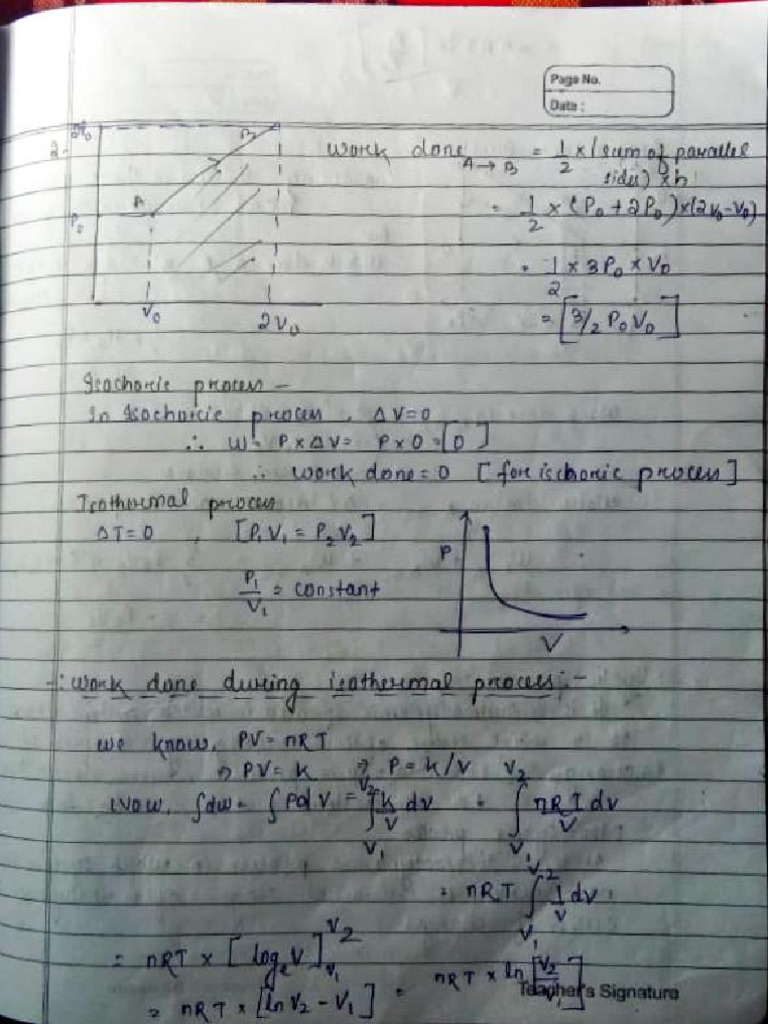 Page No.
Date :
2.
2P₀
B
A
P₀
V₀
2V₀
Work done A→B = 1/2 × (sum of parallel
sides) × h
= 1/2 × (P₀ + 2P₀) × (2V₀ - V₀)
= 1/2 × 3P₀ × V₀
= [3/2 P₀V₀]
Isochoric process -
In Isochoric process, ΔV = 0
∴ W = P × ΔV = P × 0 = [0]
∴ work done = 0 [for ischoric process]
Isothermal process
ΔT = 0 , [P₁V₁ = P₂V₂]
P₁/V₁ = constant
P
V
-: Work done during isothermal process :-
We know, PV = nRT
⇒ PV = k ⇒ P = k/V
Now, ∫dw = ∫PdV = ∫_{V₁}^{V₂} k/V dv = ∫_{V₁}^{V₂} nRT/V dv
= nRT ∫_{V₁}^{V₂} 1/V dv
= nRT × [logₑV]_{V₁}^{V₂}
= nRT × [ln V₂ - V₁] = nRT × ln [V₂/V₁]
Teacher's Signature